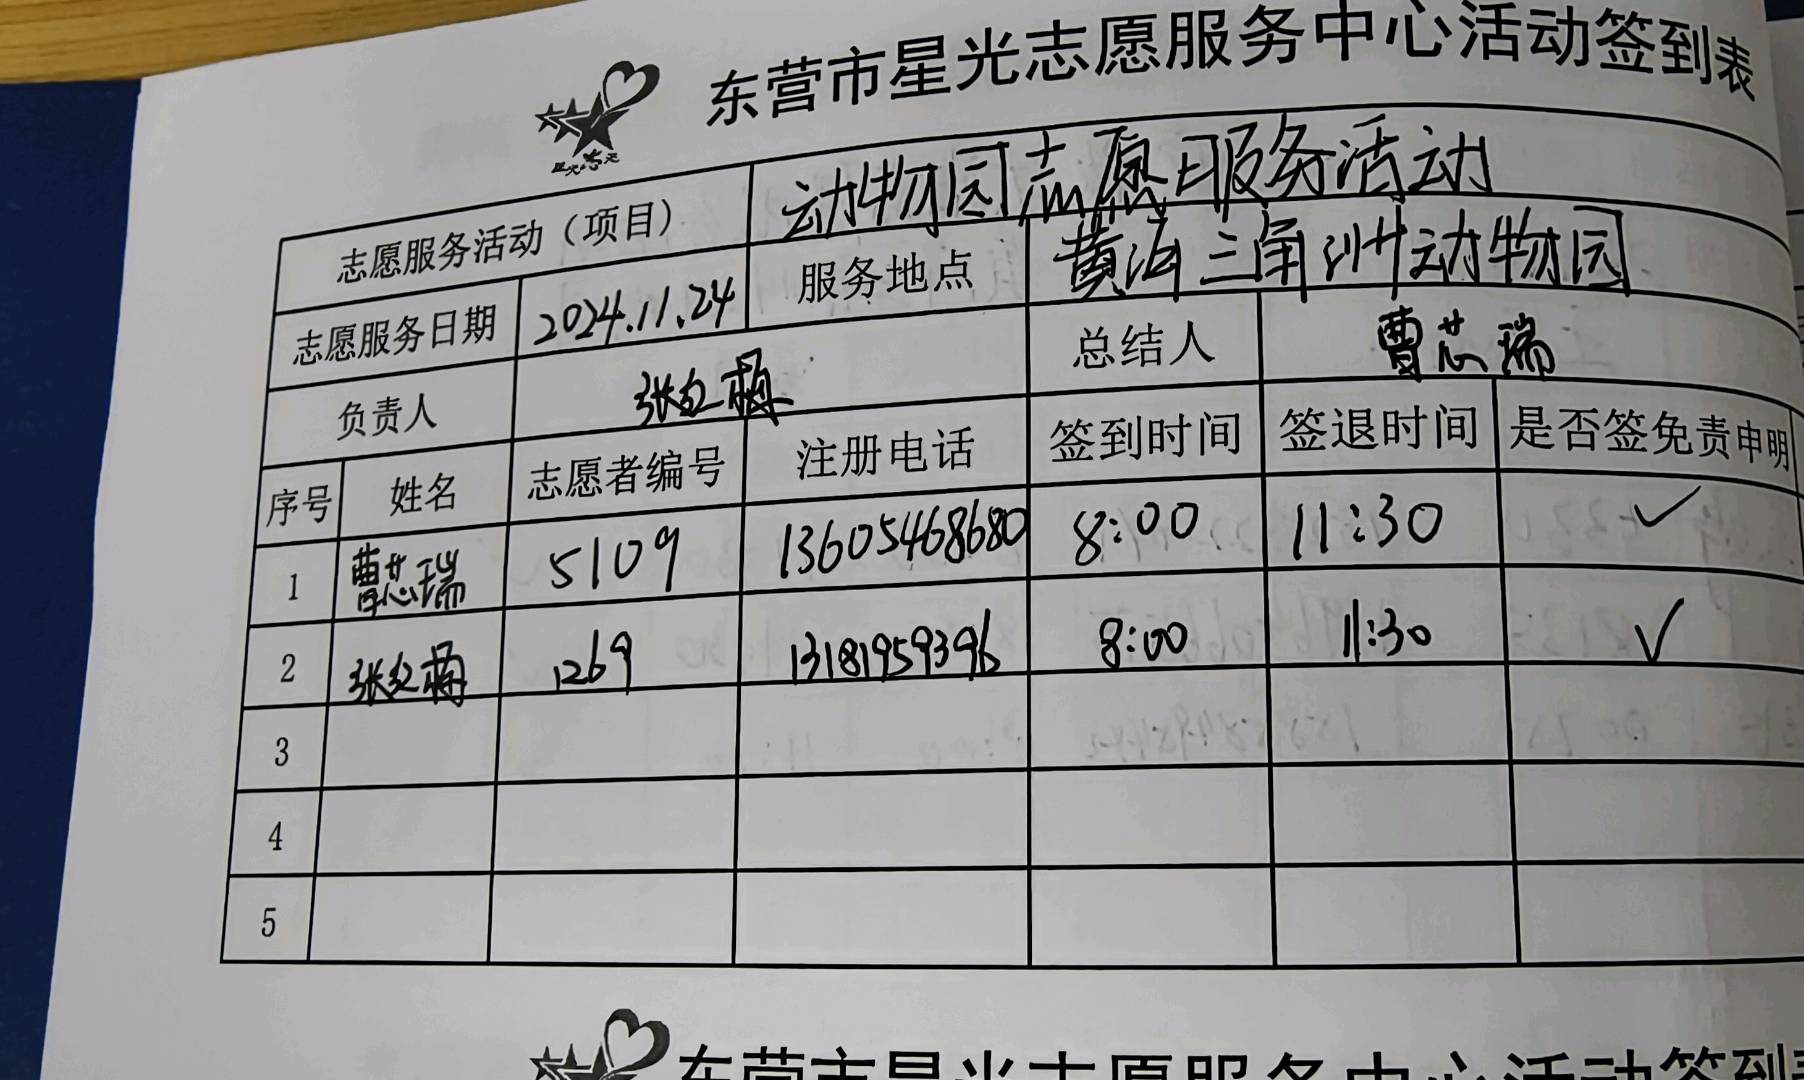 东营市星光志愿服务中心活动签到表
志愿服务活动（项目） 动物园志愿服务活动
志愿服务日期 2024.11.24 服务地点 黄河三角洲动物园
负责人 张红梅 总结人 曹芯瑞
序号 姓名 志愿者编号 注册电话 签到时间 签退时间 是否签免责申明
1 曹芯瑞 5109 13605468680 8:00 11:30 ✓
2 张红梅 1269 13181959396 8:00 11:30 ✓
3
4
5
东营市星光志愿服务中心活动签到表